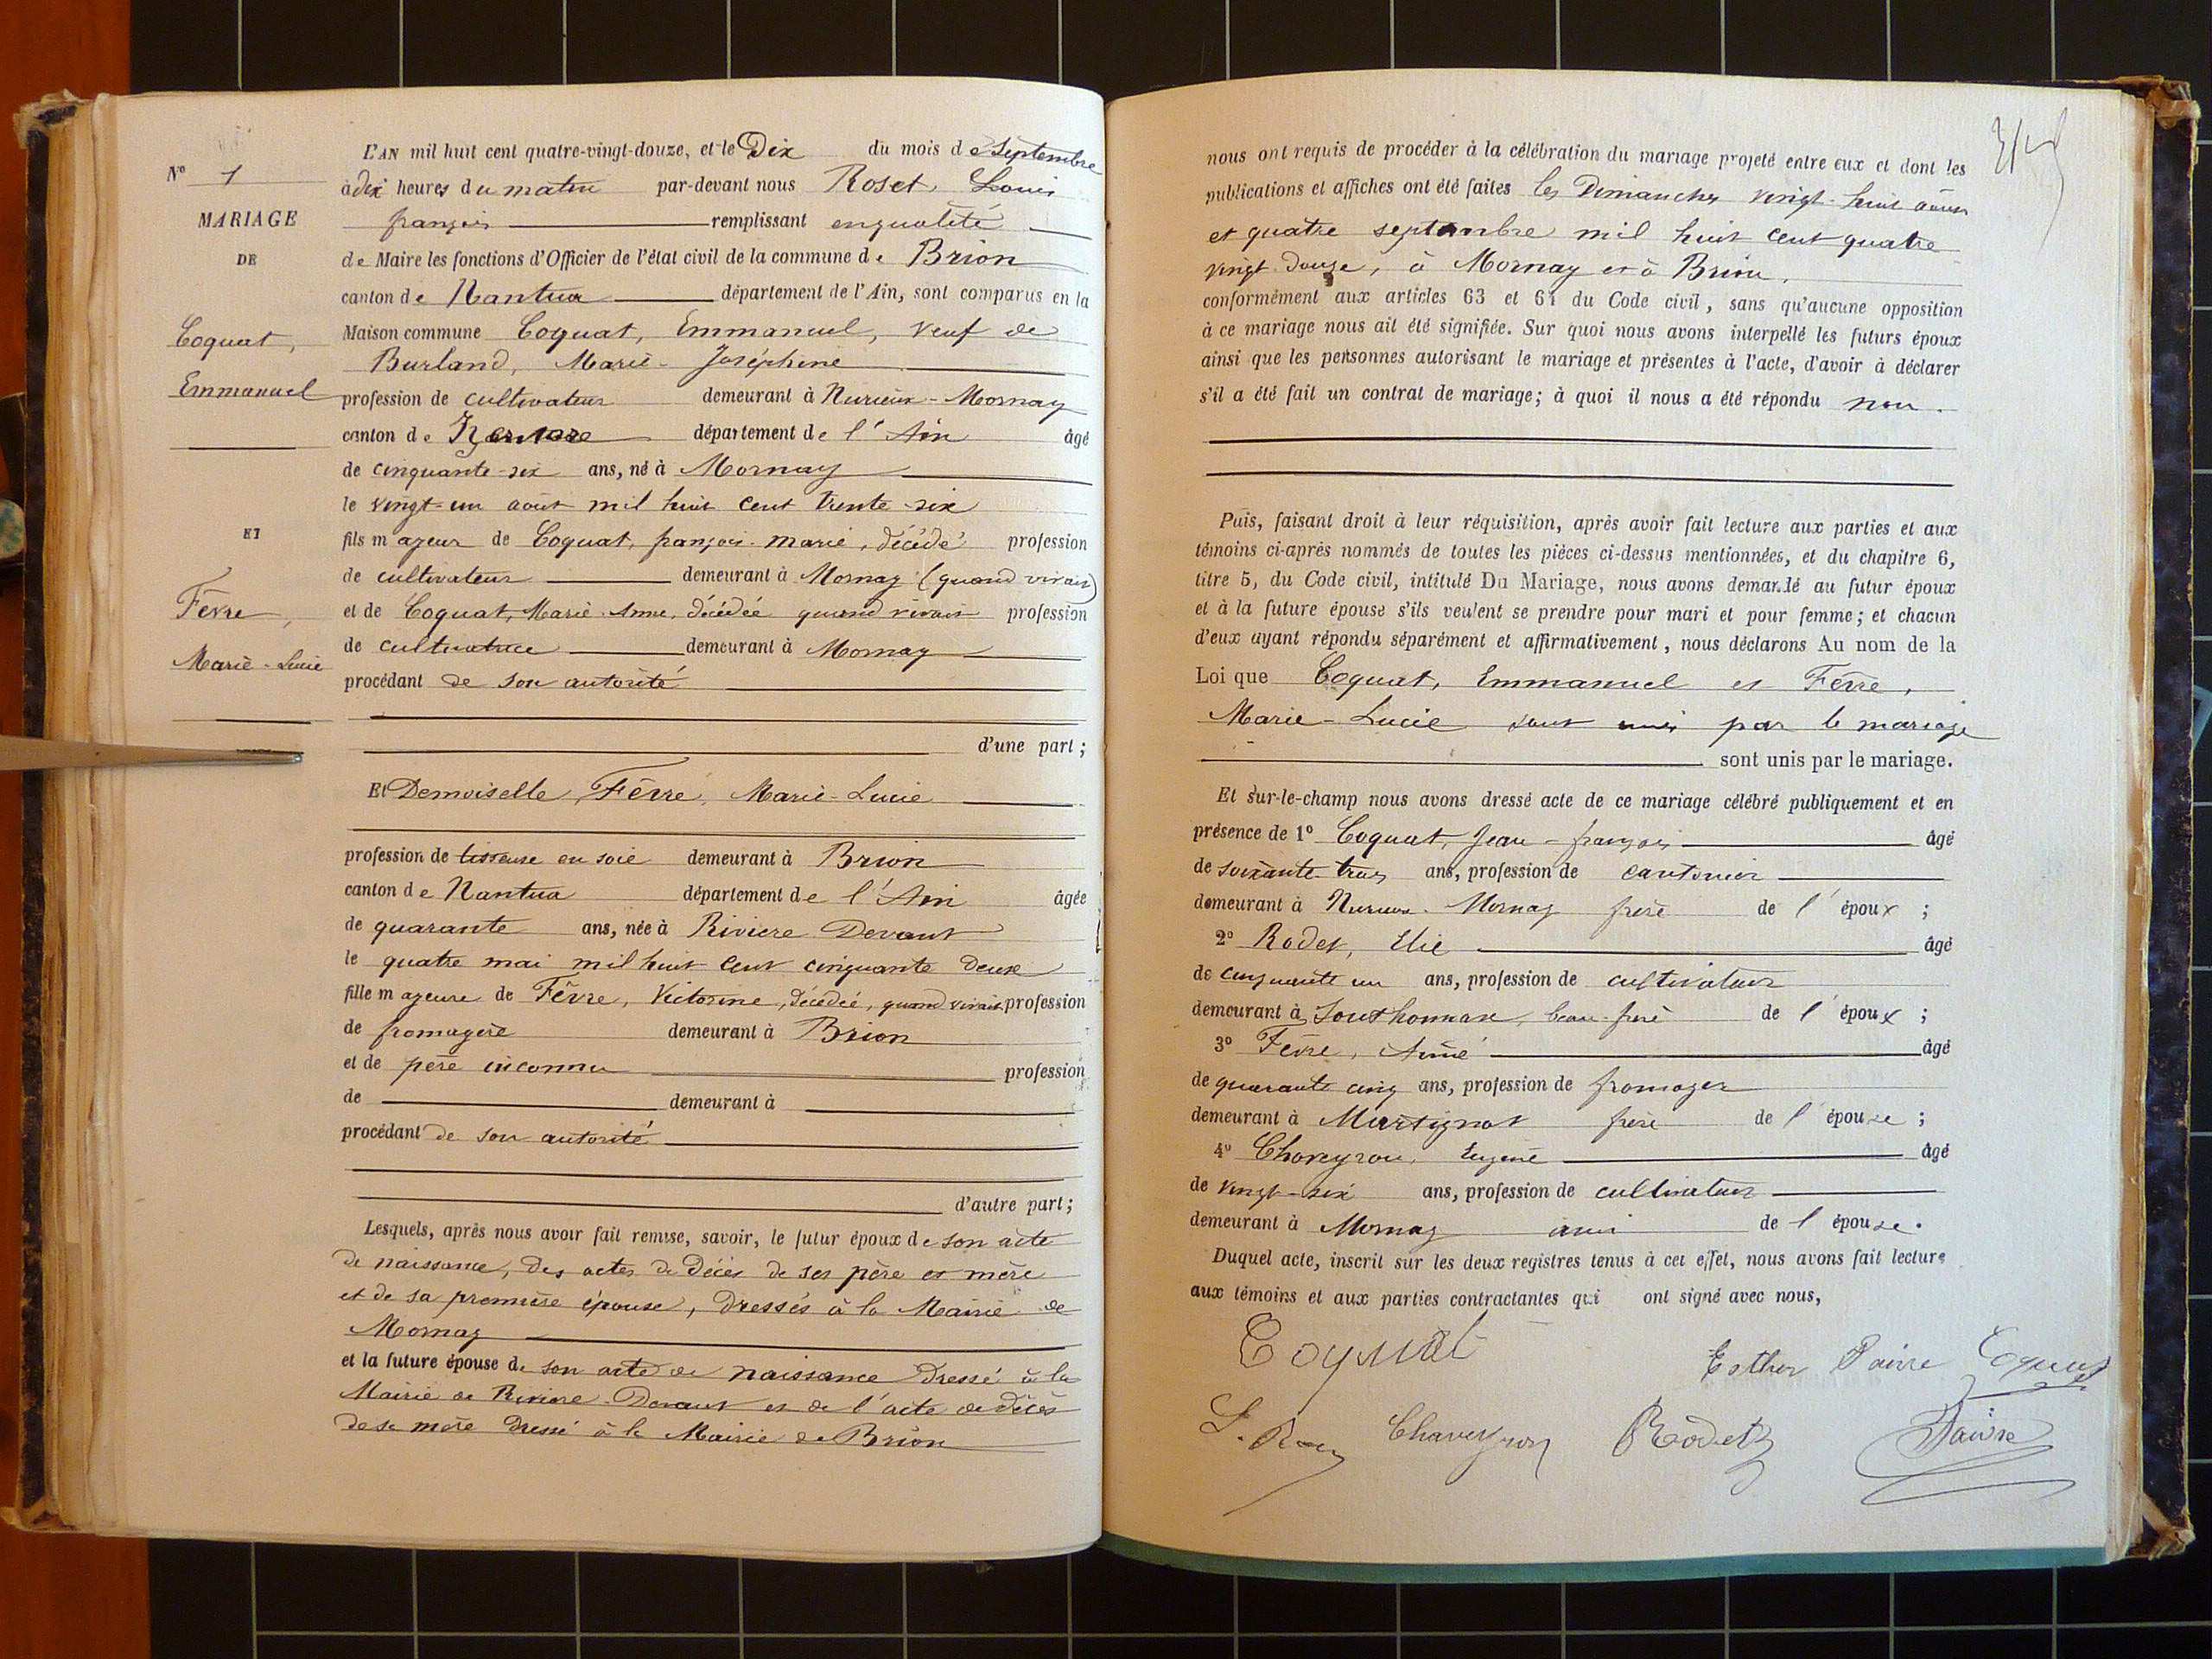 N° 1
MARIAGE
DE
Coquat,
Emmanuel
ET
Fèvre,
Marie-Lucie
L'AN mil huit cent quatre-vingt-douze, et le Dix du mois de Septembre
à dix heures du matin par-devant nous Roset, Louis
françois remplissant en qualité
de Maire les fonctions d'Officier de l'état civil de la commune de Brion
canton de Nantua département de l'Ain, sont comparus en la
Maison commune Coquat, Emmanuel, veuf de
Burland, Marie-Joséphine
profession de cultivateur demeurant à Nurieux-Mornay
canton de Izernore département de l'Ain âgé
de cinquante-six ans, né à Mornay
le vingt-un août mil huit cent trente-six
fils majeur de Coquat, françois-marie, décédé profession
de cultivateur demeurant à Mornay (quand vivait)
et de Coquat, Marie-Anne, décédée quand vivait profession
de cultivatrice demeurant à Mornay
procédant de son autorité
d'une part;
Et Demoiselle, Fèvre, Marie-Lucie
profession de tisseuse en soie demeurant à Brion
canton de Nantua département de l'Ain âgée
de quarante ans, née à Riviere Devant
le quatre mai mil huit cent cinquante deux
fille majeure de Fèvre, Victorine, décédée, quand vivait profession
de fromagère demeurant à Brion
et de père inconnu profession
de demeurant à
procédant de son autorité
d'autre part;
Lesquels, après nous avoir fait remise, savoir, le futur époux de son acte
de naissance, des actes de décès de ses père et mère
et de sa première épouse, dressés à la Mairie de
Mornay
et la future épouse de son acte de naissance dressé à la
Mairie de Riviere-Devant et de l'acte de décès
de sa mère dressé à la Mairie de Brion
nous ont requis de procéder à la célébration du mariage projeté entre eux et dont les
publications et affiches ont été faites les Dimanches vingt-huit août
et quatre septembre mil huit cent quatre
vingt-douze, à Mornay et à Brion,
conformément aux articles 63 et 64 du Code civil, sans qu'aucune opposition
à ce mariage nous ait été signifiée. Sur quoi nous avons interpellé les futurs époux
ainsi que les personnes autorisant le mariage et présentes à l'acte, d'avoir à déclarer
s'il a été fait un contrat de mariage; à quoi il nous a été répondu non.
Puis, faisant droit à leur réquisition, après avoir fait lecture aux parties et aux
témoins ci-après nommés de toutes les pièces ci-dessus mentionnées, et du chapitre 6,
titre 5, du Code civil, intitulé Du Mariage, nous avons demandé au futur époux
et à la future épouse s'ils veulent se prendre pour mari et pour femme; et chacun
d'eux ayant répondu séparément et affirmativement, nous déclarons Au nom de la
Loi que Coquat, Emmanuel et Fèvre,
Marie-Lucie sont unis par le mariage
sont unis par le mariage.
Et sur-le-champ nous avons dressé acte de ce mariage célébré publiquement et en
présence de 1° Coquat, Jean-françois âgé
de soixante-trois ans, profession de cantonnier
demeurant à Nurieux-Mornay frère de l'époux;
2° Rodet, Elie âgé
de cinquante un ans, profession de cultivateur
demeurant à Sonthonnax, beau-frère de l'époux;
3° Fèvre, Aimé âgé
de quarante cinq ans, profession de fromager
demeurant à Martignat frère de l'épouse;
4° Chaveyron, Eugène âgé
de vingt-six ans, profession de cultivateur
demeurant à Mornay ami de l'épouse.
Duquel acte, inscrit sur les deux registres tenus à cet effet, nous avons fait lecture
aux témoins et aux parties contractantes qui ont signé avec nous,
Coquat
Esther Faivre Coquat
Chaveyron Rodet Faivre